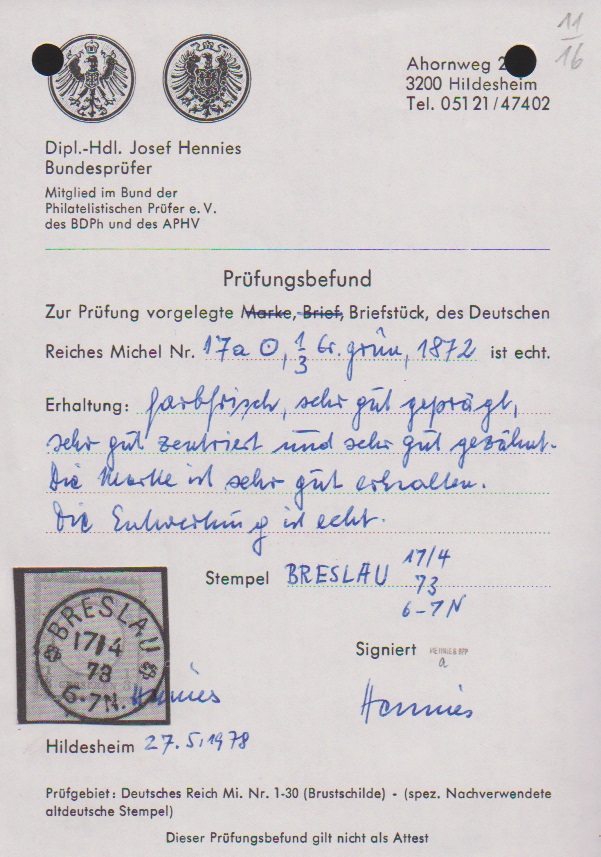 11
16
Ahornweg 2
3200 Hildesheim
Tel. 05121/47402
Dipl.-Hdl. Josef Hennies
Bundesprüfer
Mitglied im Bund der
Philatelistischen Prüfer e. V.
des BDPh und des APHV
Prüfungsbefund
Zur Prüfung vorgelegte Marke, Brief, Briefstück, des Deutschen
Reiches Michel Nr. 17a ⊙, 1/3 Gr. grün, 1872 ist echt.
Erhaltung: farbfrisch, sehr gut geprägt,
sehr gut zentriert und sehr gut gezähnt.
Die Marke ist sehr gut erhalten.
Die Entwertung ist echt.
Stempel BRESLAU 17/4
73
6-7N
BRESLAU
17/4
73
6-7N.
Signiert HENNIES BPP
a
Hennies
Hennies
Hildesheim 27.5.1978
Prüfgebiet: Deutsches Reich Mi. Nr. 1-30 (Brustschilde) - (spez. Nachverwendete
altdeutsche Stempel)
Dieser Prüfungsbefund gilt nicht als Attest